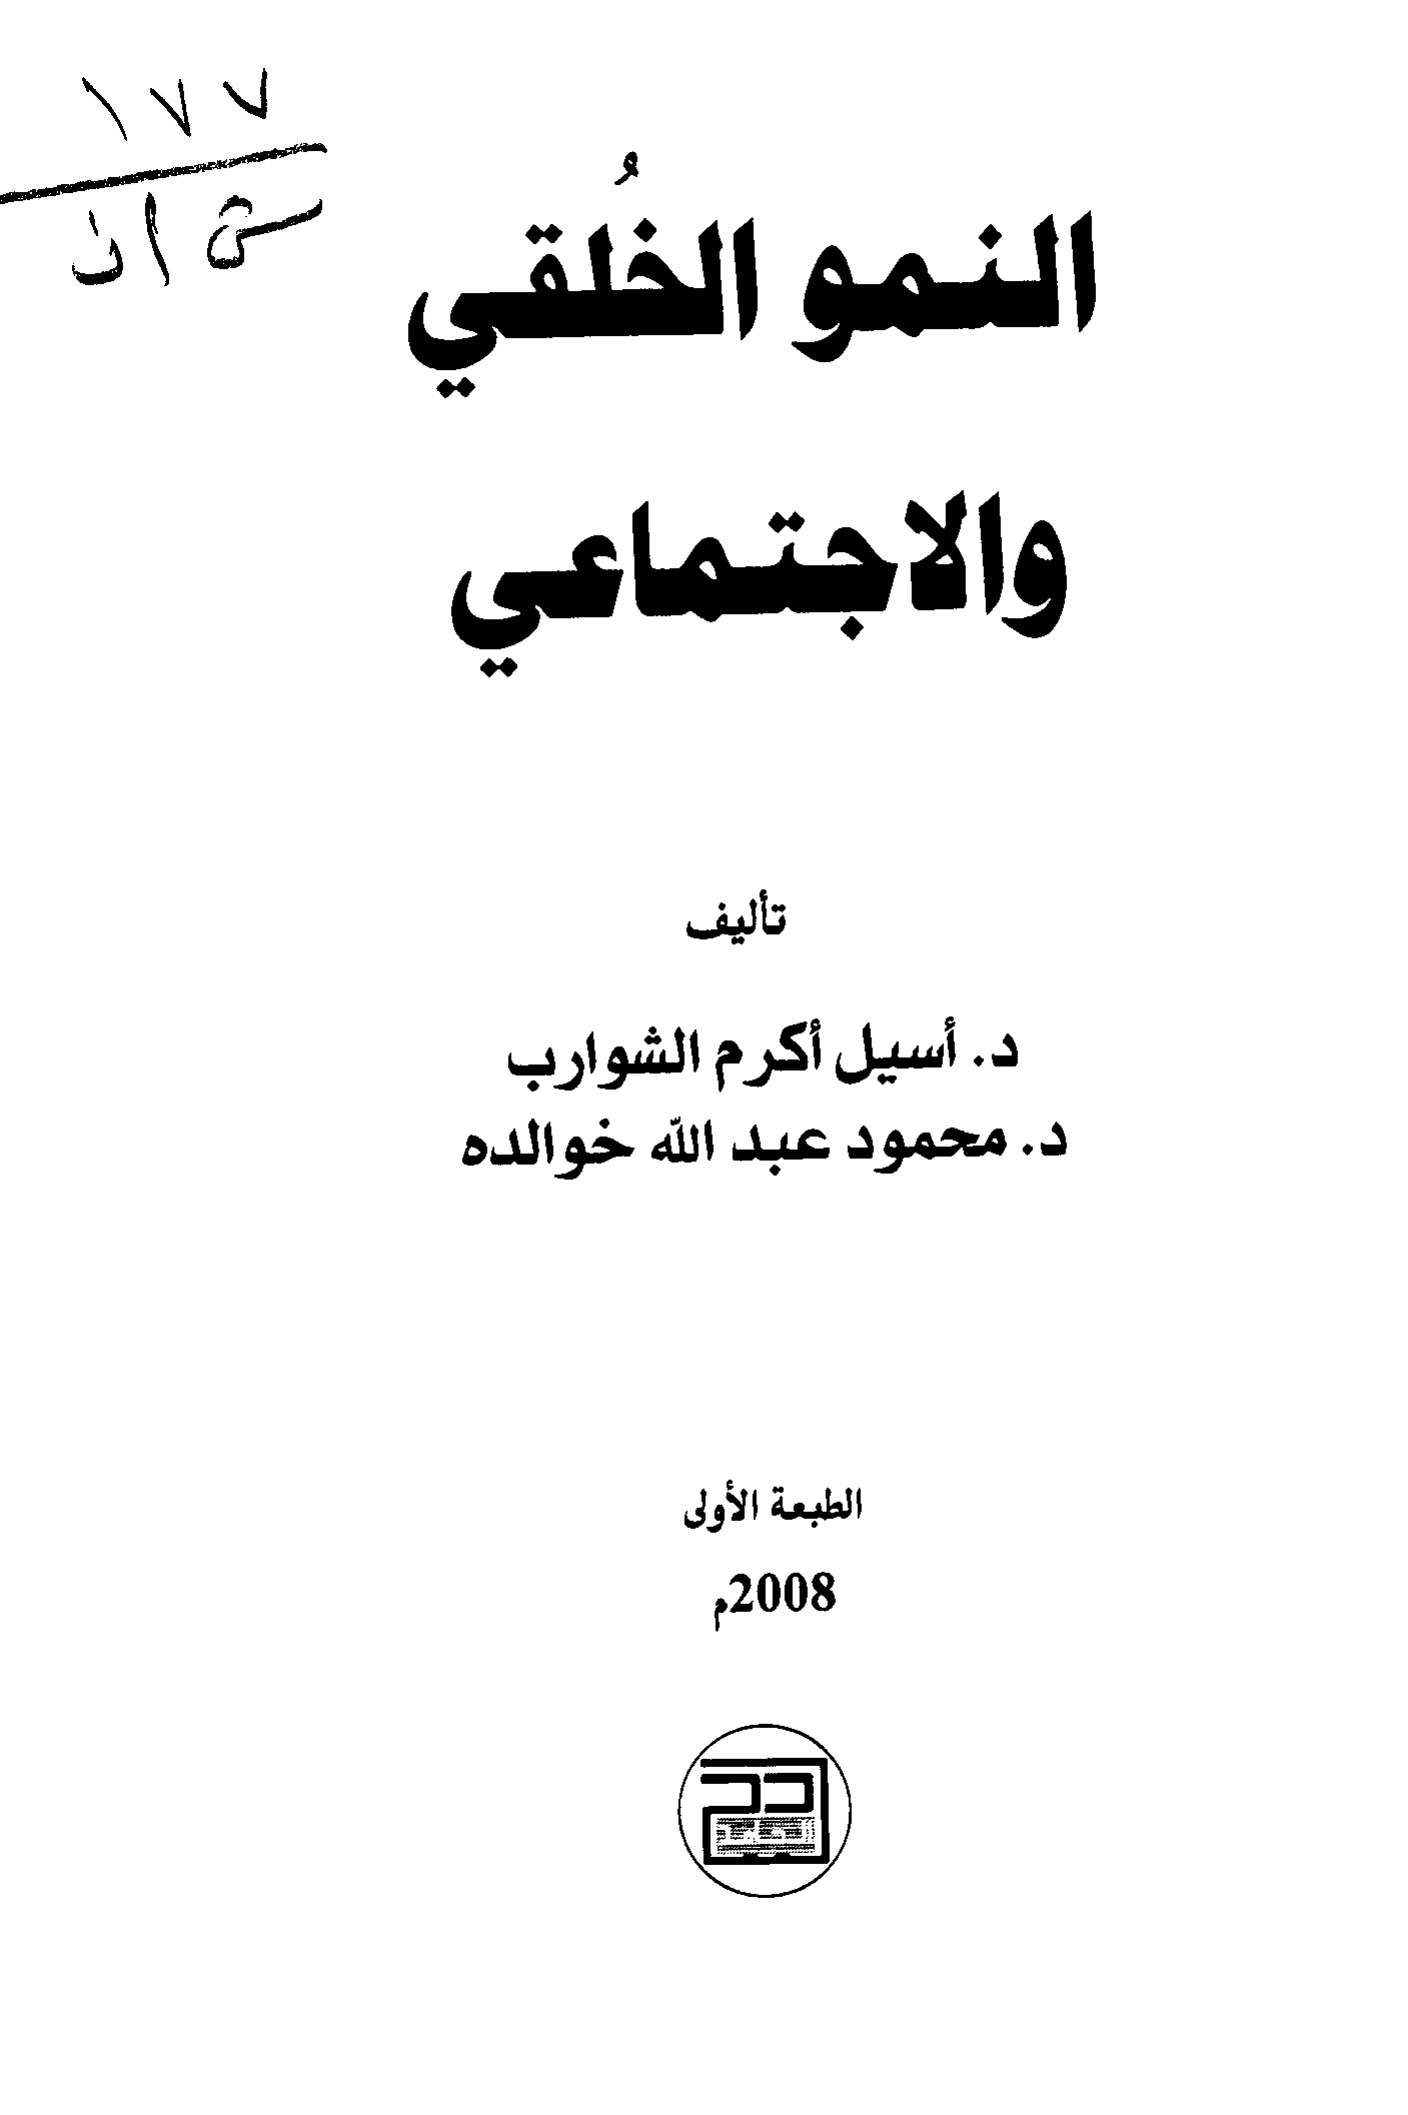 ١٧٧
النمو الخُلقي
والاجتماعي
تأليف
د. أسيل أكرم الشوارب
د. محمود عبد الله خوالده
الطبعة الأولى
2008م